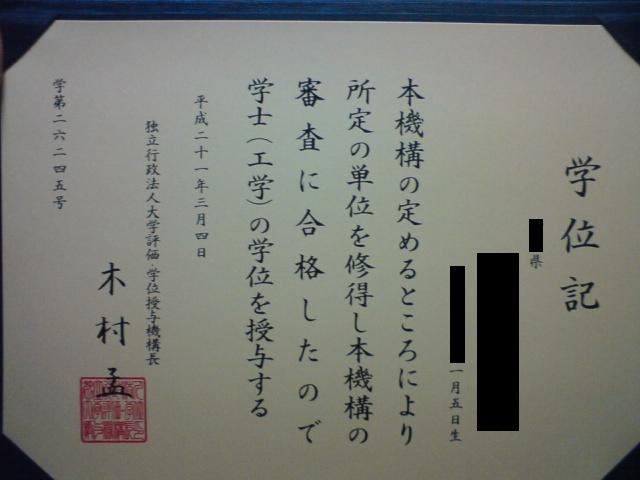 学位記
県
一月五日生
本機構の定めるところにより
所定の単位を修得し本機構の
審査に合格したので
学士（工学）の学位を授与する
平成二十一年三月四日
独立行政法人大学評価・学位授与機構長
木村孟
学第二六二四五号